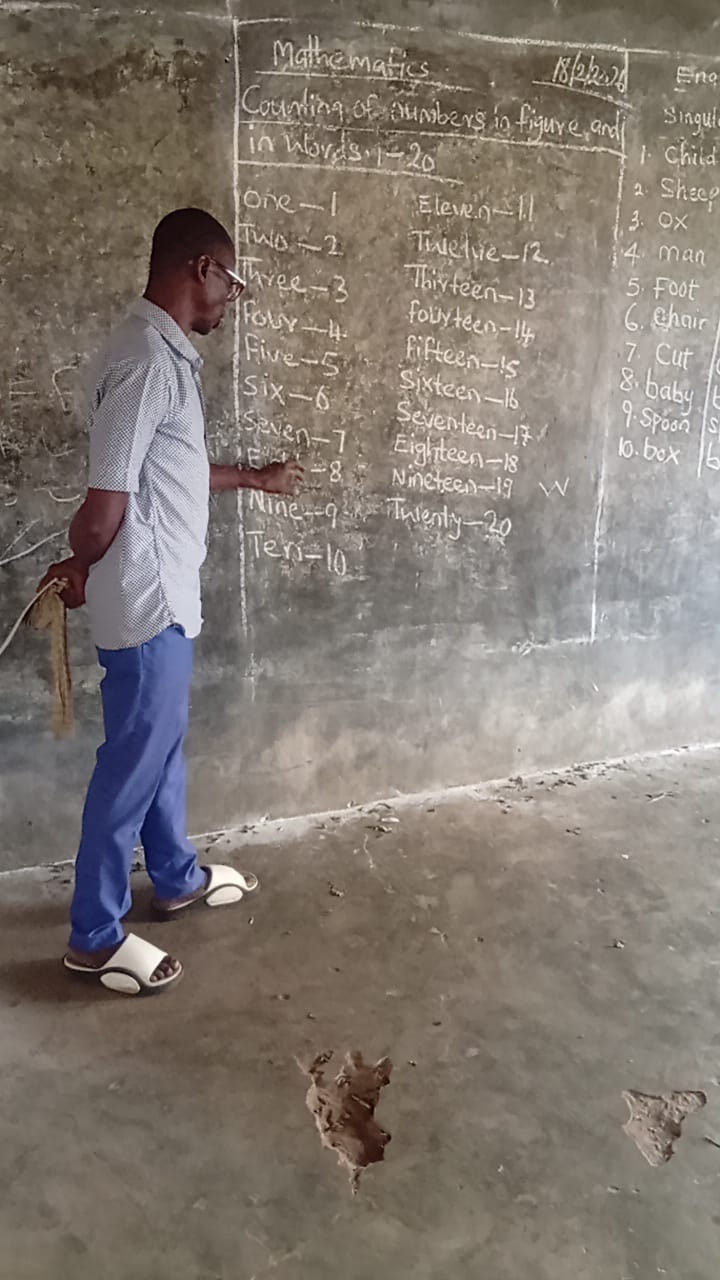 Mathematics
18/2/2026
Counting of numbers in figure and
in words. 1-20
One-1
Two-2
Three-3
four-4
Five-5
Six-6
Seven-7
-8
Nine-9
Ten-10
Eleven-11
Twelve-12
Thirteen-13
fourteen-14
fifteen-15
Sixteen-16
Seventeen-17
Eighteen-18
Nineteen-19
Twenty-20
W
Eng
Singul
1. Child
2. Sheep
3. OX
4. man
5. Foot
6. Chair
7. Cut
8. baby
9. Spoon
10. box